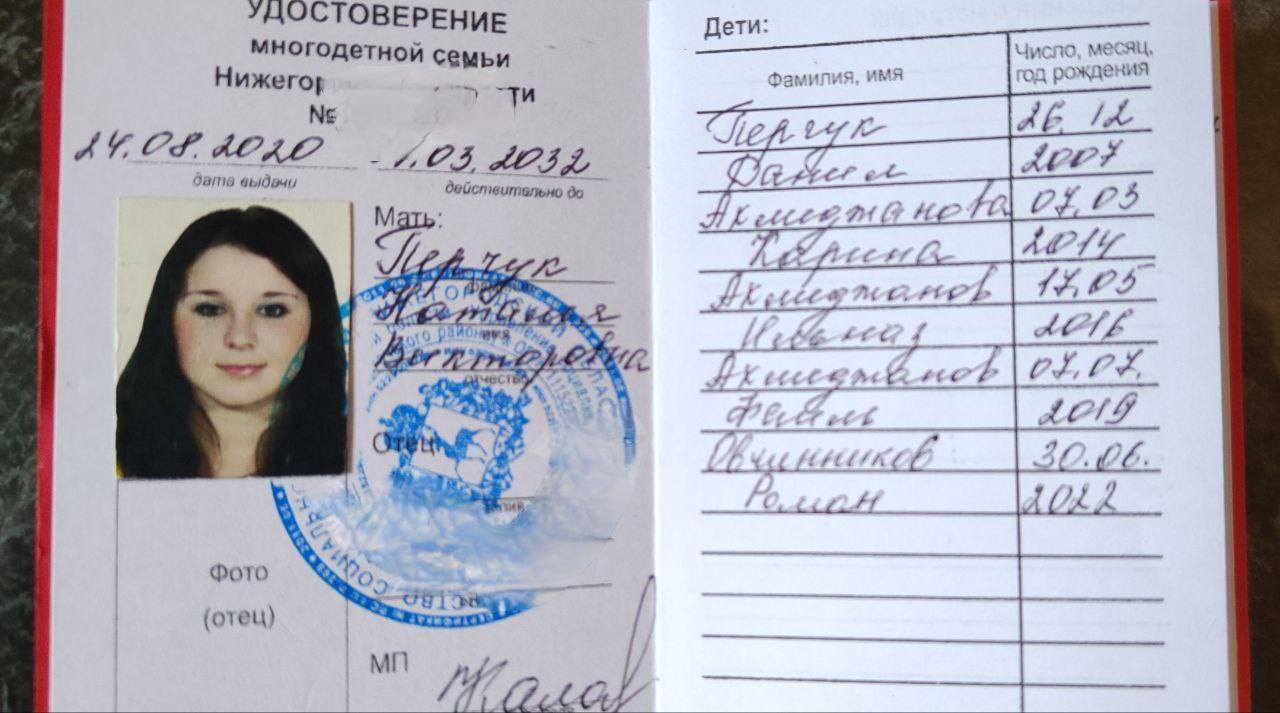 УДОСТОВЕРЕНИЕ
многодетной семьи
Нижегор ти
№
24.08.2020 1.03.2032
дата выдачи действительно до
Мать:
Перчук
Наталья
имя
Викторовна
отчество
Отец
Фото
(отец)
МП
Дети:
Фамилия, имя
Число, месяц,
год рождения
Перчук 26.12
Данил 2007
Ахмиджанова 07.03
Карина 2014
Ахмиджанов 17.05
Ильназ 2016
Ахмиджанов 07.07.
Фаиль 2019
Овчинников 30.06.
Роман 2022